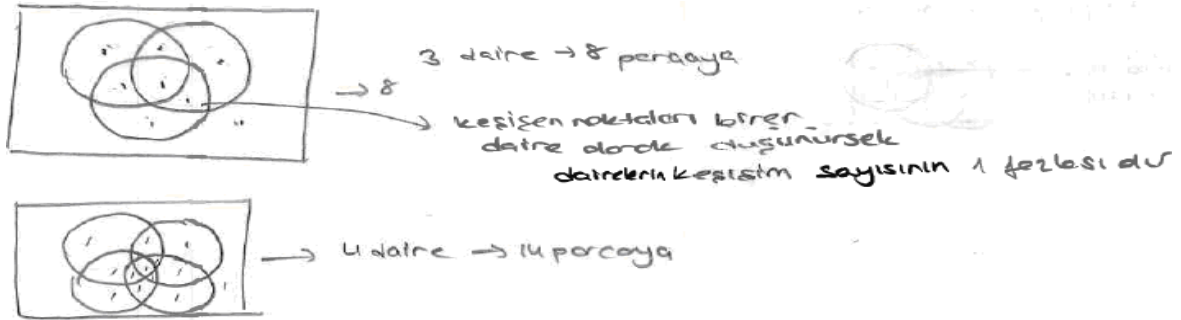 3 daire → 8 parçaya
→ 8
kesişen noktaları birer
daire olarak düşünürsek
dairelerin kesişim sayısının 1 fazlasıdır
→ 4 daire → 14 parçaya